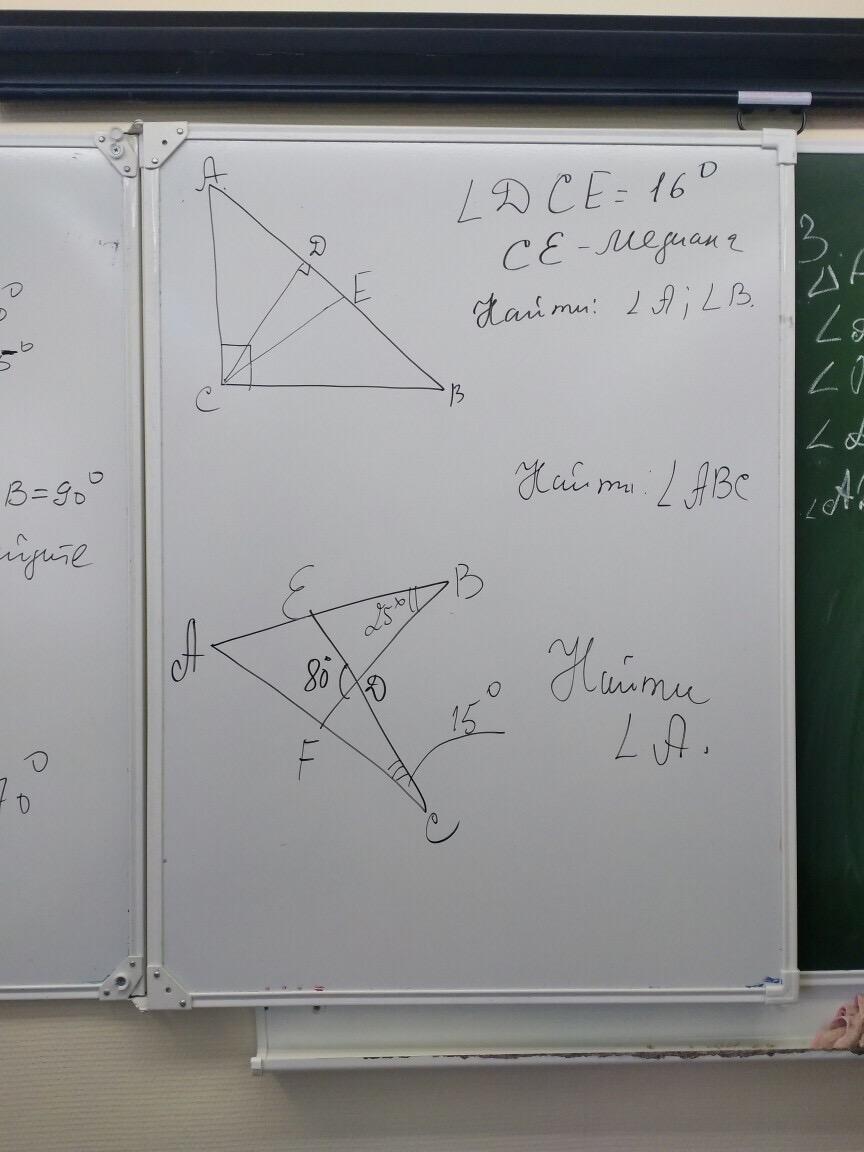 A
D
E
C
B
∠DCE = 16°
CE - медиана
Найти: ∠A; ∠B.
Найти: ∠ABC
E
B
25°
A
80°
D
F
15°
C
Найти
∠A.
5°
B = 90°
70°
3.
∠
∠
∠